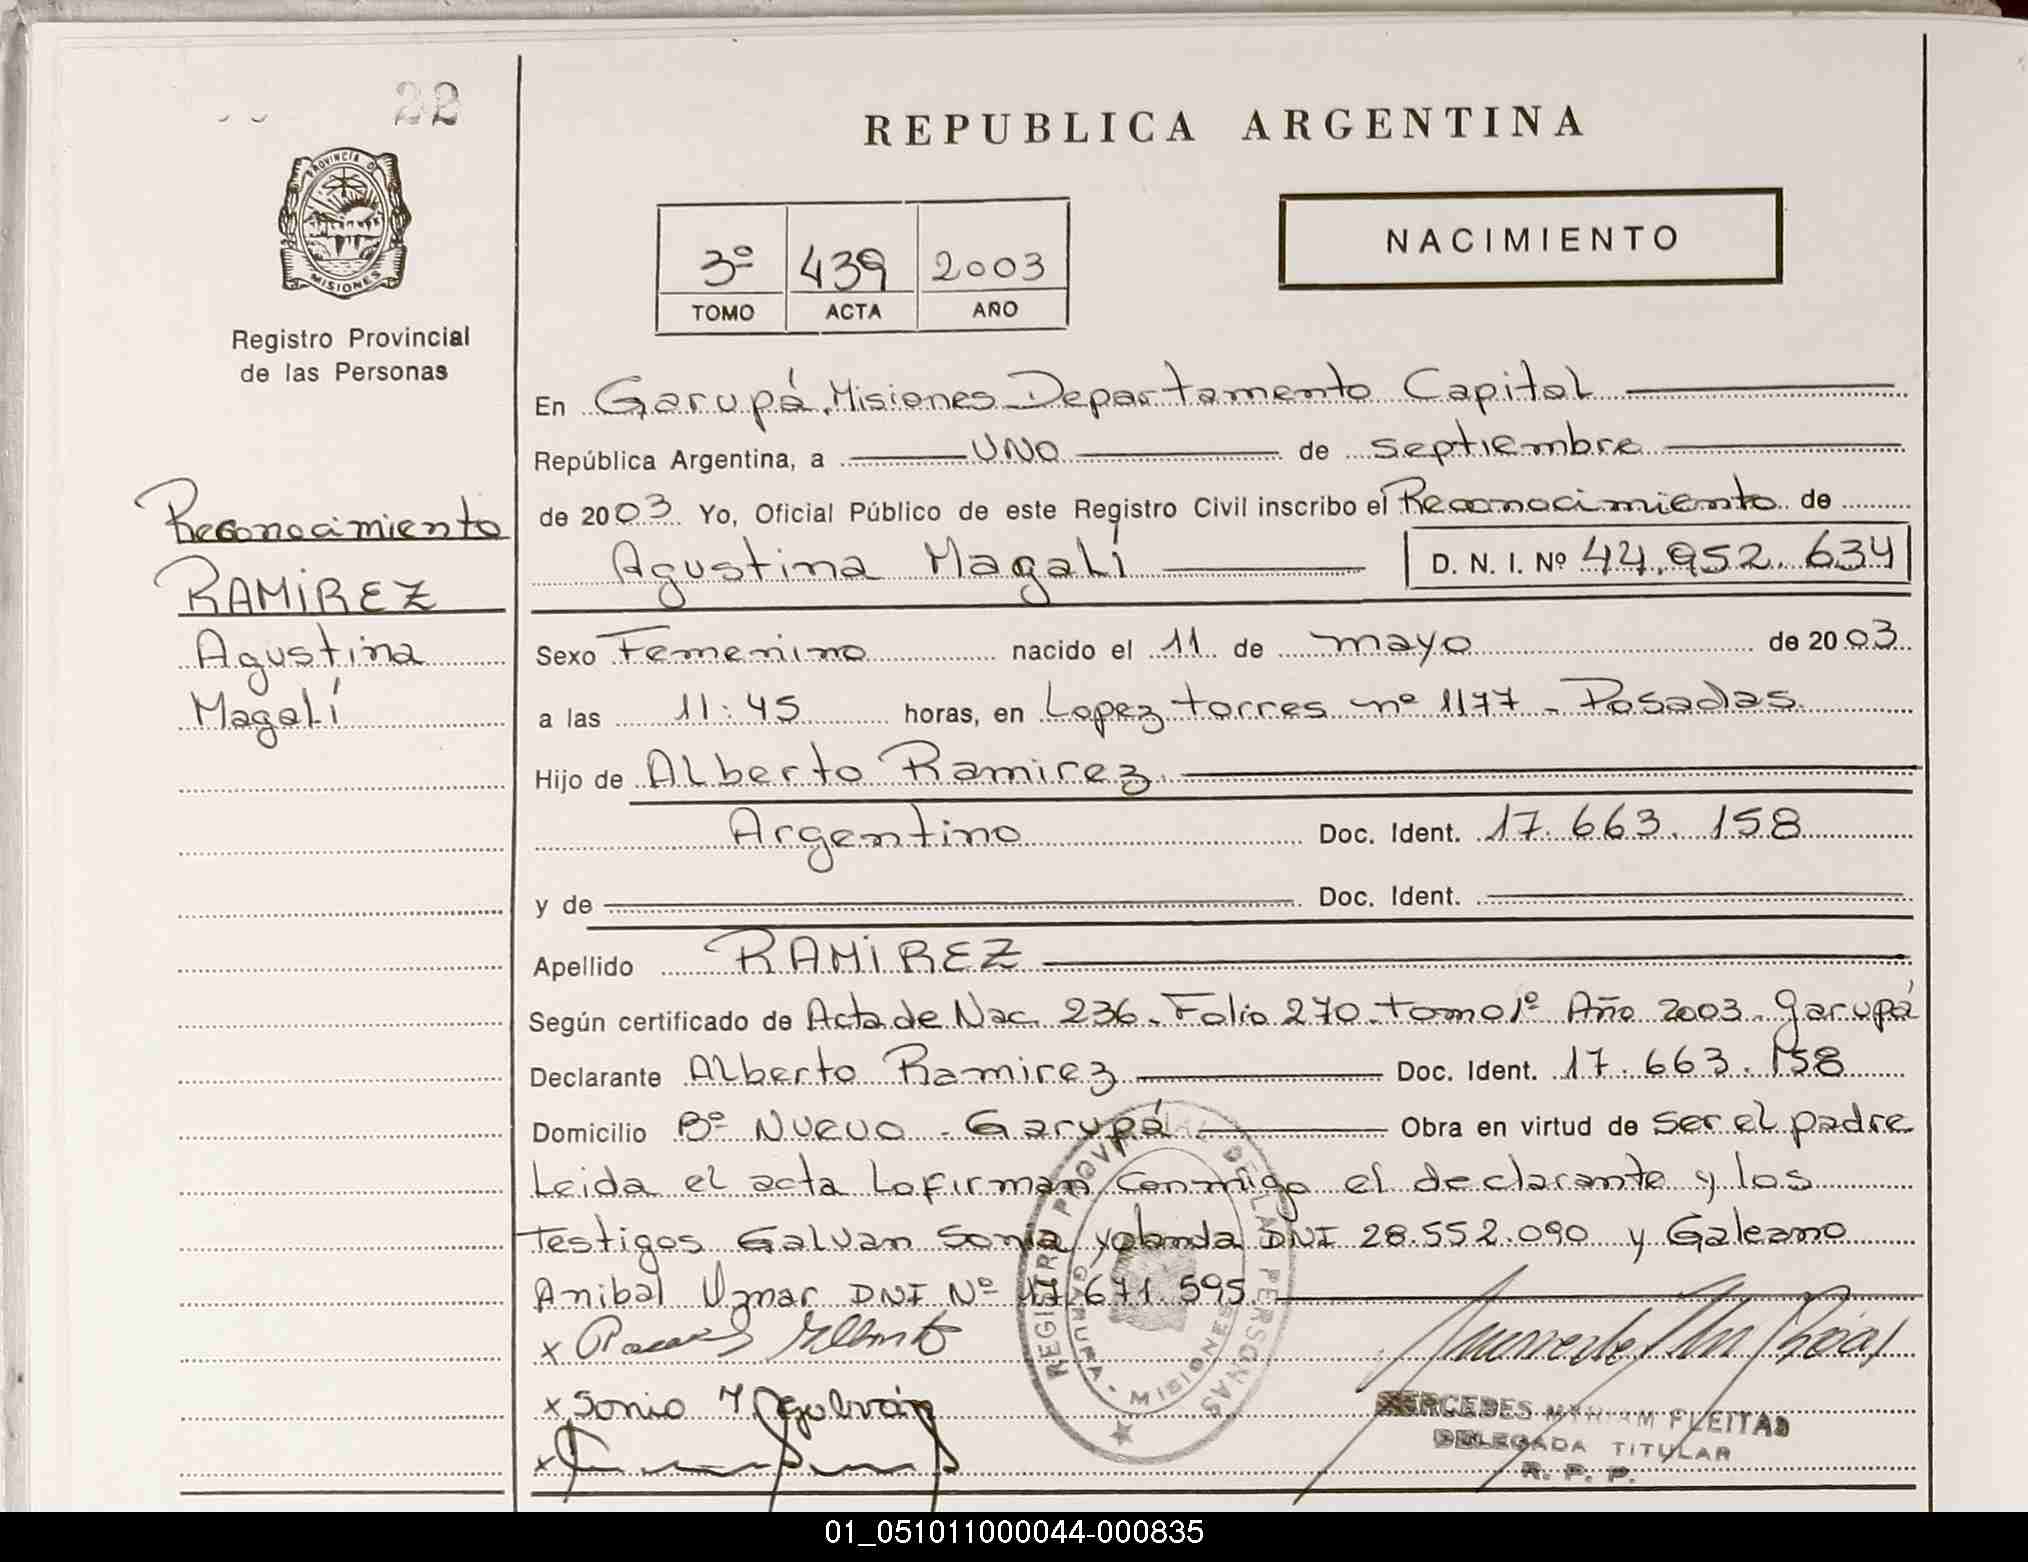 22
REPUBLICA ARGENTINA
PROVINCIA D
MISIONES
Registro Provincial
de las Personas
3º 439 2003
TOMO ACTA AÑO
NACIMIENTO
En Garupá, Misiones Departamento Capital
República Argentina, a UNO de septiembre
de 2003 Yo, Oficial Público de este Registro Civil inscribo el Reconocimiento de
Agustina Magalí D. N. I. Nº 44.952.634
Reconocimiento
RAMIREZ
Agustina
Magalí
Sexo Femenino nacido el 11 de mayo de 2003
a las 11:45 horas, en Lopez torres nº 1177 - Posadas
Hijo de Alberto Ramirez
Argentino Doc. Ident. 17.663.158
y de Doc. Ident.
Apellido RAMIREZ
Según certificado de Acta de Nac. 236. Folio 270. tomo 1º Año 2003. garupá
Declarante Alberto Ramirez Doc. Ident. 17.663.158
Domicilio Bº Nuevo - Garupá Obra en virtud de ser el padre
Leida el acta La firman conmigo el declarante y los
testigos Galvan Sonia yolanda DNI 28.552.090 y Galeano
Anibal DNI Nº 17.671.595
x
x Sonia Y galván
x
REGISTRO PROV DE LAS PERSONAS
GARUPA - MISIONES
MERCEDES MYRIAM FLEITAS
DELEGADA TITULAR
R. P. P.
01_051011000044-000835